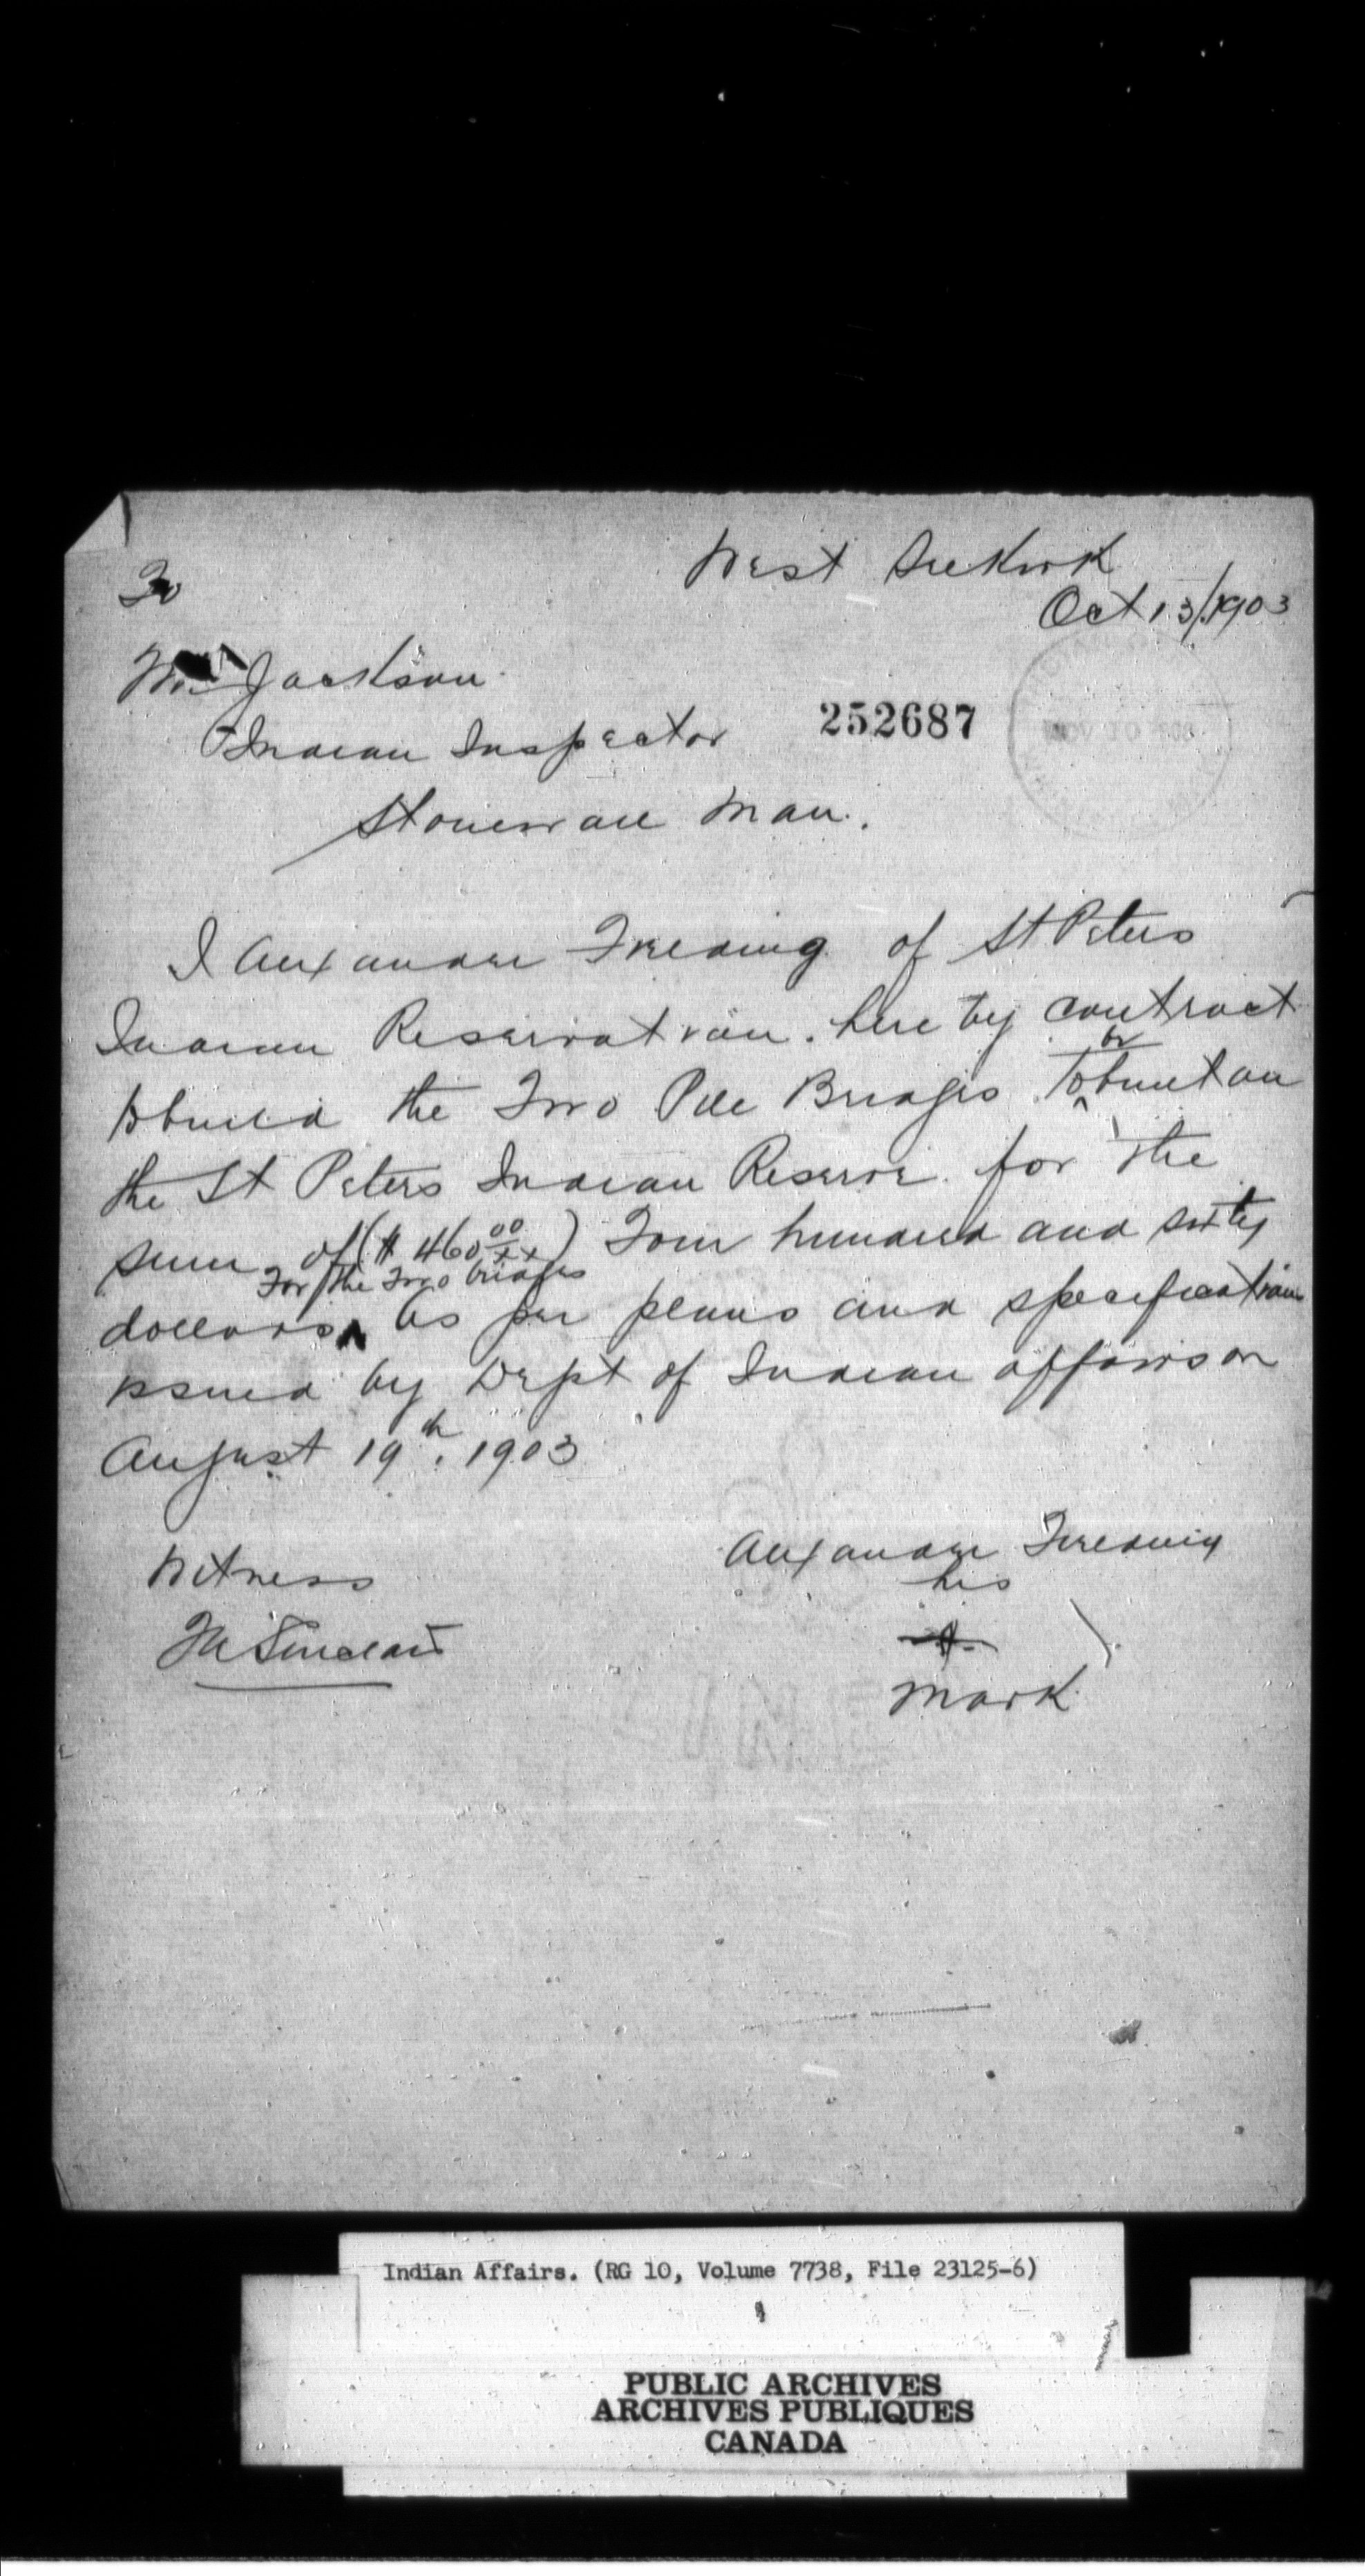 West Selkirk
Oct 13/1903
To
Mr Jackson
Indian Inspector
252687
Stonewall Man.
I Alexander Freding of St Peters
Indian Reservation. here by contract
to build the Two Pile Bridges to be built on
the St Peters Indian Reserve. for the
sum of ($ 460 00/xx) Four hundred and sixty
For the Two bridges
dollars, As per plans and specifications
issued by Dept of Indian affairs on
August 19th. 1903
Witness
Alexander
his
Sinclair
mark
Indian Affairs. (RG 10, Volume 7738, File 23125-6)
PUBLIC ARCHIVES
ARCHIVES PUBLIQUES
CANADA